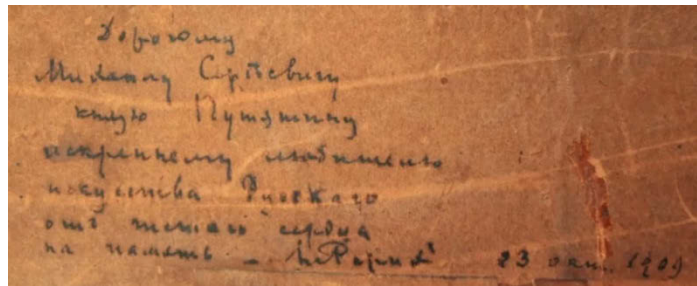 Дорогому
Михаилу Сергѣевичу
князю Путятину
искреннему любителю
искусства Русскаго
отъ сердца
на память — 23 окт. 1909